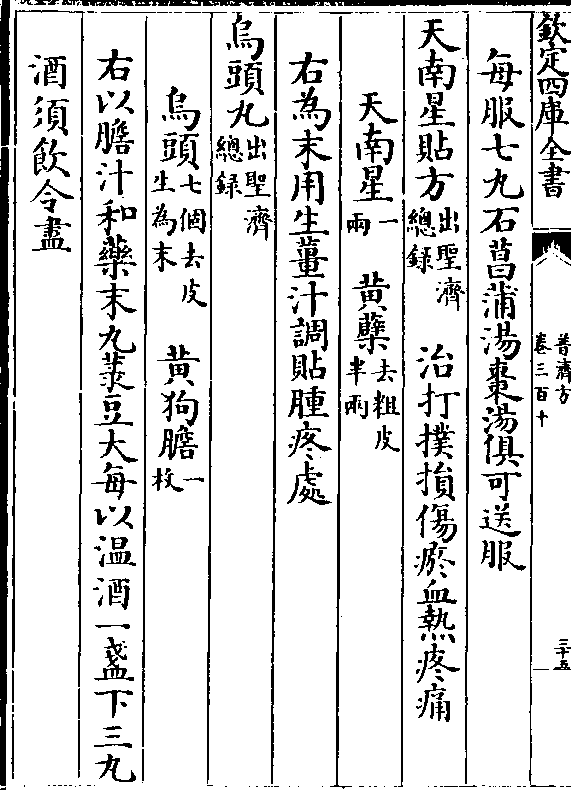 欽定四庫全書
普濟方
卷三百十
三十五
每服七九石菖蒲湯棗湯俱可送服
天南星貼方出聖濟總錄 治打撲損傷瘀血熱疼痛
天南星一兩 黄蘗去粗皮半兩
右為末用生薑汁調貼腫疼處
烏頭丸出聖濟總錄
烏頭七個去皮生為末 黄狗膽一枚
右以膽汁和藥末丸菉豆大每以温酒一盞下三丸
酒須飲令盡